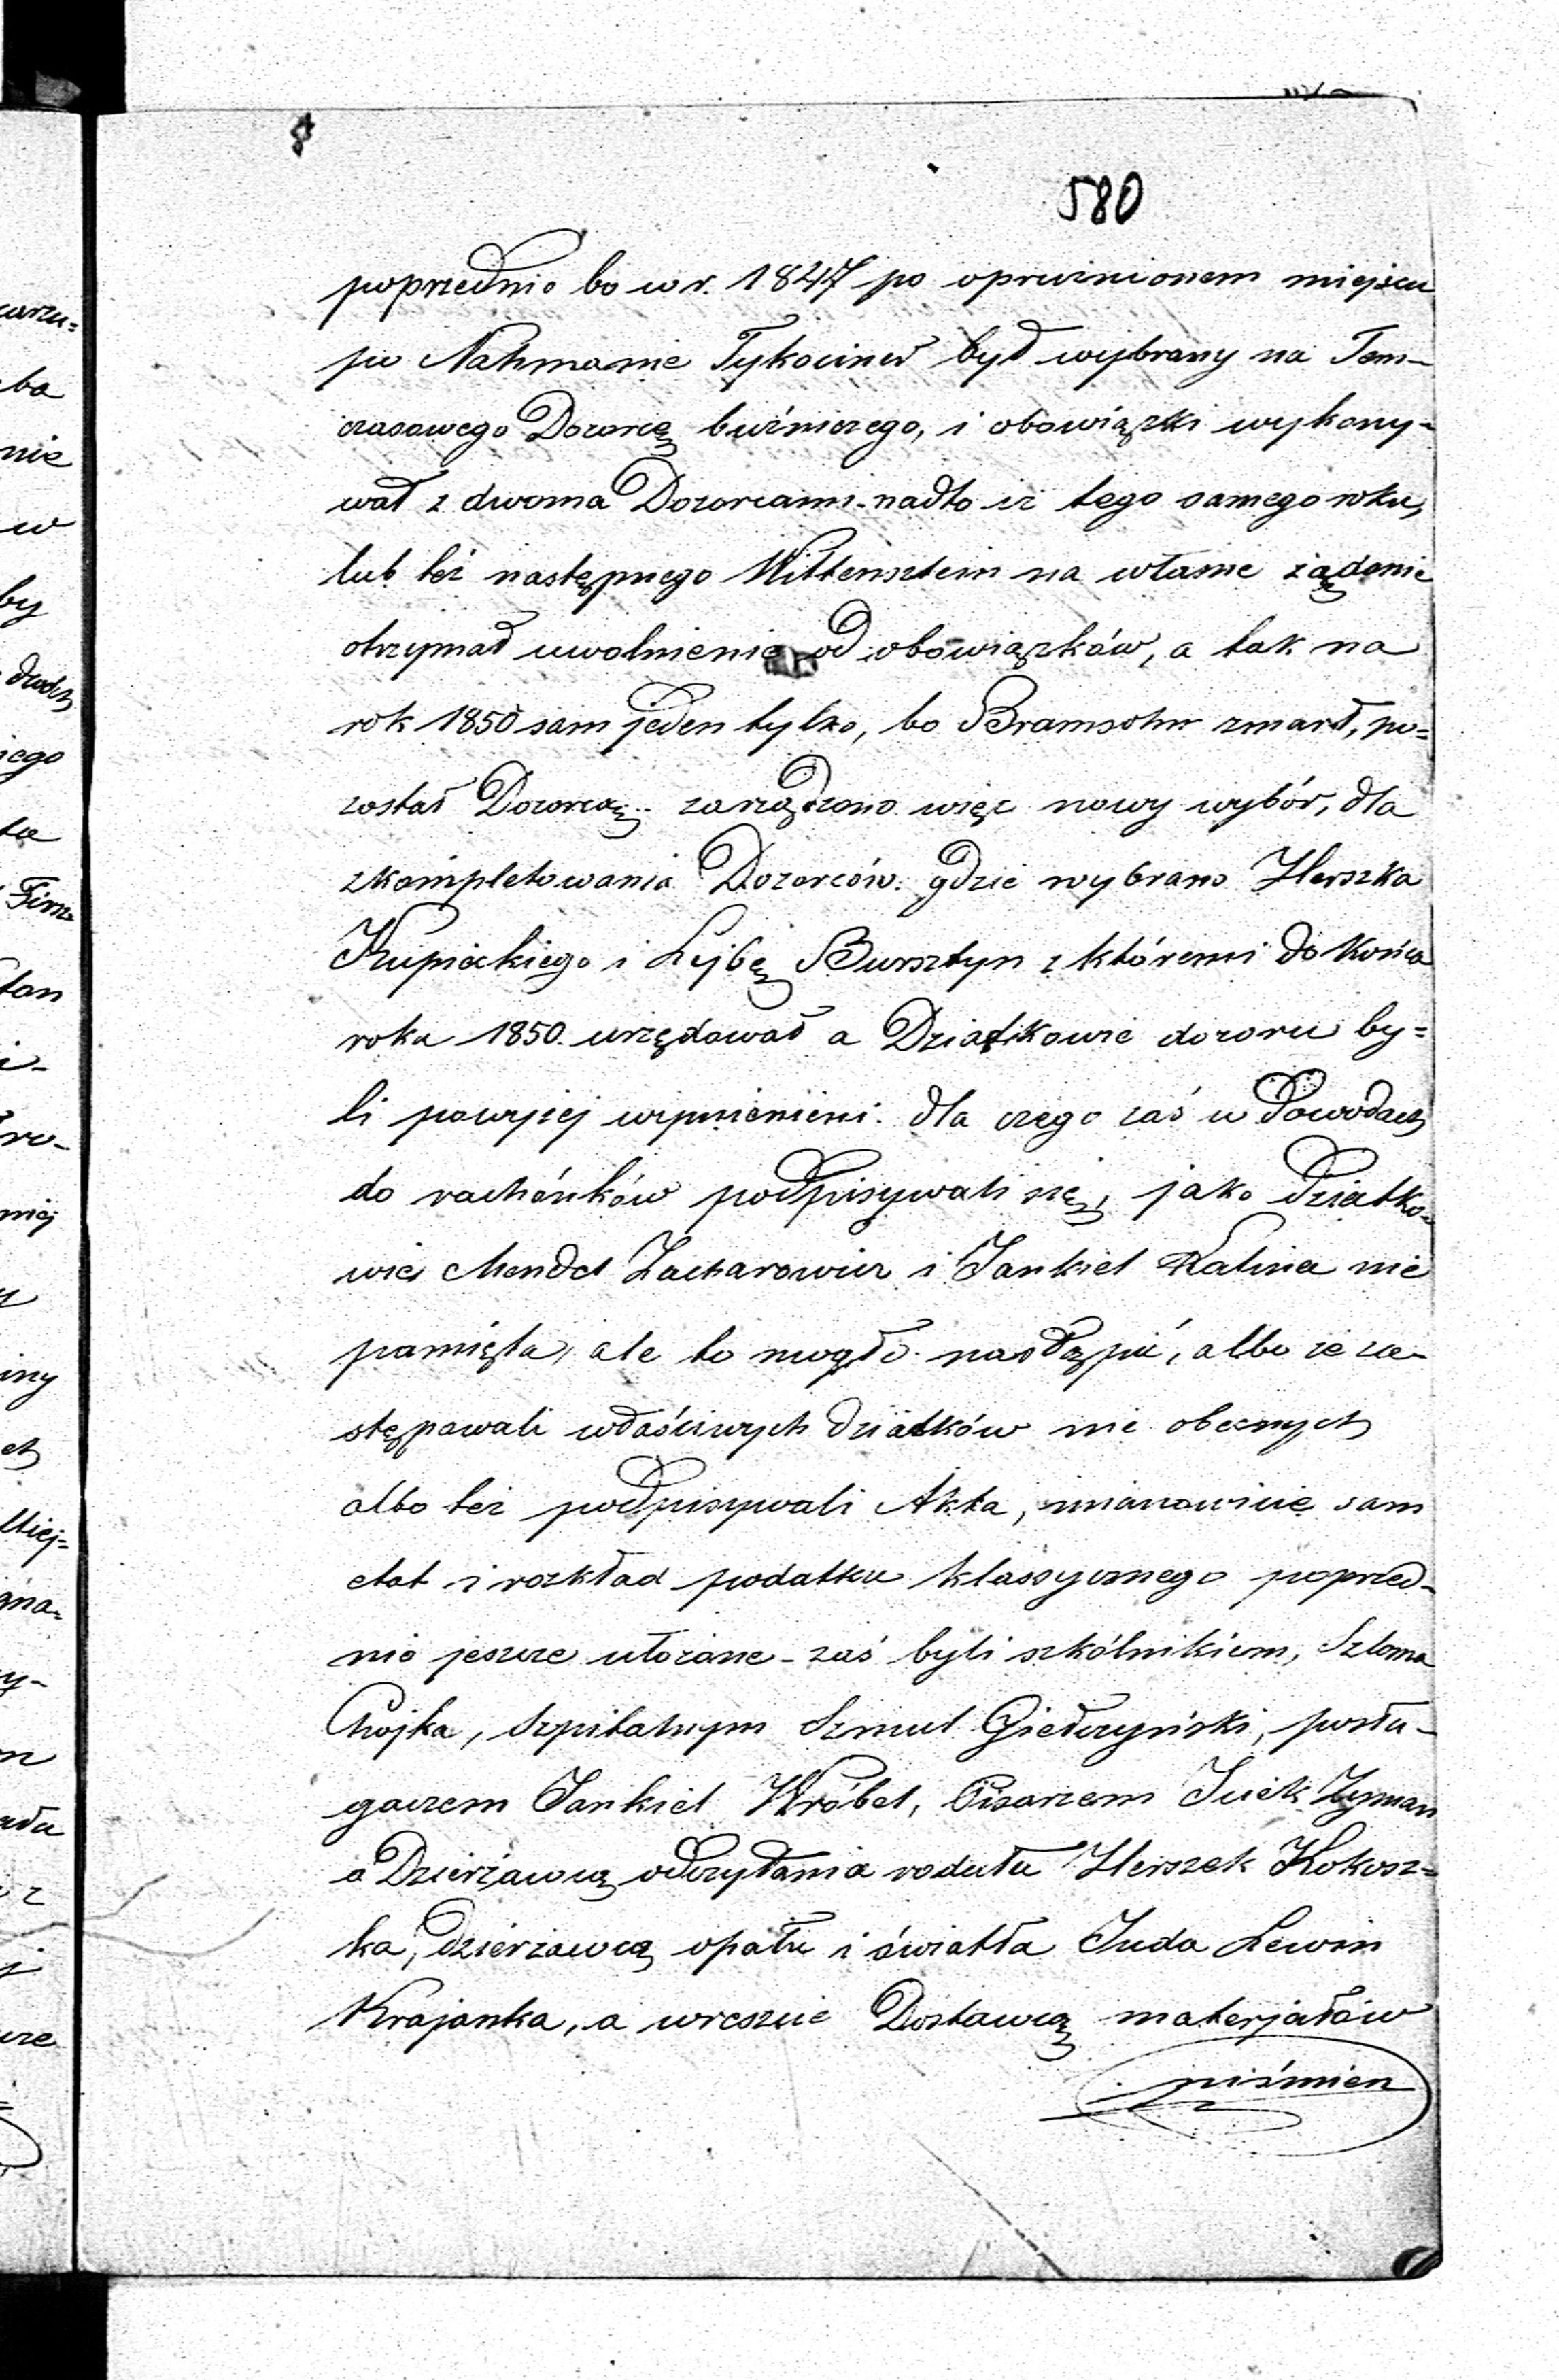 580
poprzednio bo w r. 1847 po opruznionem miejscu
po Nahmanie Tykociner był wybrany na Tem-
czasowego Dozorcę buźniczego, i obowiązki wykony-
wał z dwoma Dozorcami. nadto iż tego samego roku,
lub też następnego Wittensztein na własne żądanie
otrzymał uwolnienie od obowiązków, a tak na
rok 1850 sam jeden tylko, bo Bramsohn zmarł, po=
został Dozorcą. zarządzono więc nowy wybór, dla
zkompletowania Dozorców. gdzie wybrano Herszka
Kupieckiego i Lejbę Bursztyn z któremi do końca
roku 1850. urzędował a Dziatkowie dozoru by=
li powyżej wymienieni. dla czego zaś w Dowodach
do rachónków podpisywali się, jako Dziatko=
wie Mendel Zacharowicz i Jankiel Kalina nie
pamięta, ale to mogło nastąpić, albo że za-
stępowali właściwych dziatków nie obecnych
albo też podpisywali Akta, mianowicie sam
etat i rozkład podatku klassycznego poprzed-
nio jeszcze ułożone - zaś byli szkólnikiem, Szloma
Chojka, Szpitalnym Szmul Giełczyński, posłu-
gaczem Jankiel Wróbel, Pisarzem Icick Zyman
a Dzierżawcą odczytania rodału Herszek Kokosz=
ka, dzierżawcą opału i światła Juda Lewin
Krajanka, a wreszcie Dostawcą materjałów
piśmien